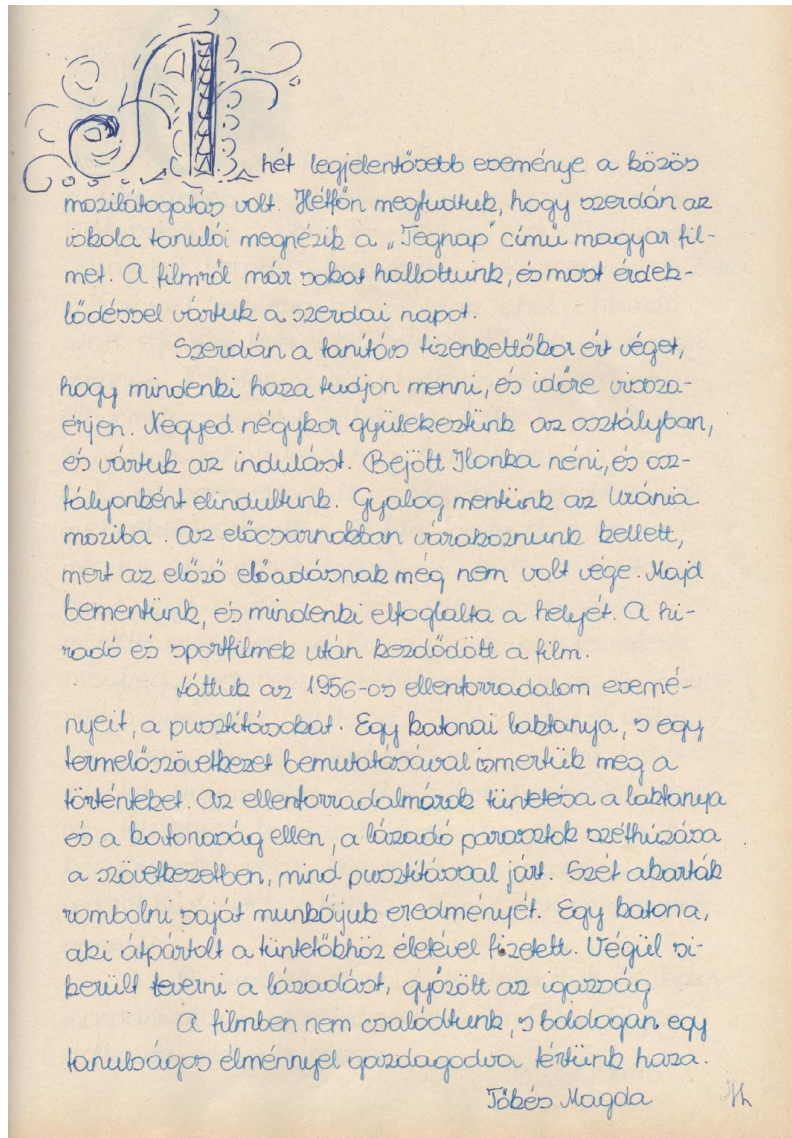 A hét legjelentősebb eseménye a közös
mozilátogatás volt. Hétfőn megtudtuk, hogy szerdán az
iskola tanulói megnézik a „Tegnap" című magyar fil-
met. A filmről már sokat hallottunk, és most érdek-
lődéssel vártuk a szerdai napot.
Szerdán a tanítás tizenkettőkor ért véget,
hogy mindenki haza tudjon menni, és időre vissza-
érjen. Negyed négykor gyülekeztünk az osztályban,
és vártuk az indulást. Bejött Ilonka néni, és osz-
tályonként elindultunk. Gyalog mentünk az Uránia
moziba. Az előcsarnokban várakoznunk kellett,
mert az előző előadásnak még nem volt vége. Majd
bementünk, és mindenki elfoglalta a helyét. A hi-
radó és sportfilmek után kezdődött a film.
Láttuk az 1956-os ellenforradalom esemé-
nyeit, a pusztításokat. Egy katonai laktanya, s egy
termelőszövetkezet bemutatásával ismertük meg a
történteket. Az ellenforradalmárok tüntetése a laktanya
és a katonaság ellen, a lázadó parasztok széthúzása
a szövetkezetben, mind pusztítással járt. Szét akarták
rombolni saját munkájuk eredményét. Egy katona,
aki átpártolt a tüntetőkhöz életével fizetett. Végül si-
került leverni a lázadást, győzött az igazság
A filmben nem csalódtunk, s boldogan egy
tanulságos élménnyel gazdagodva tértünk haza.
Tőkés Magda